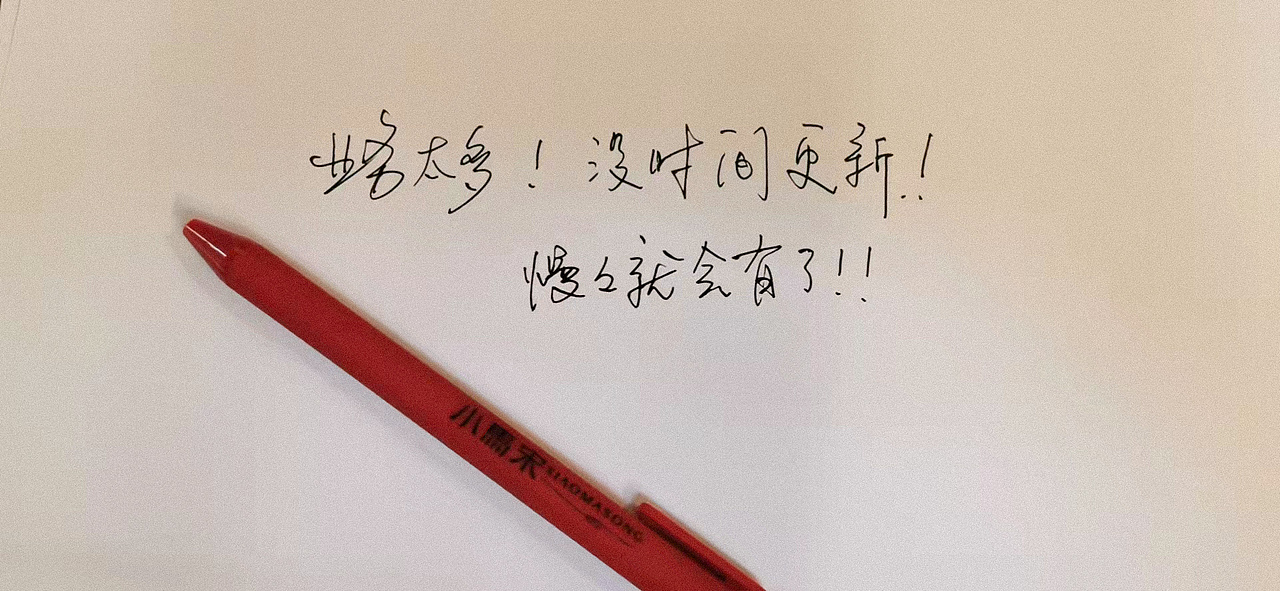 业务太多！没时间更新！
慢々就会有了！！
小马宋 XIAOMASONG